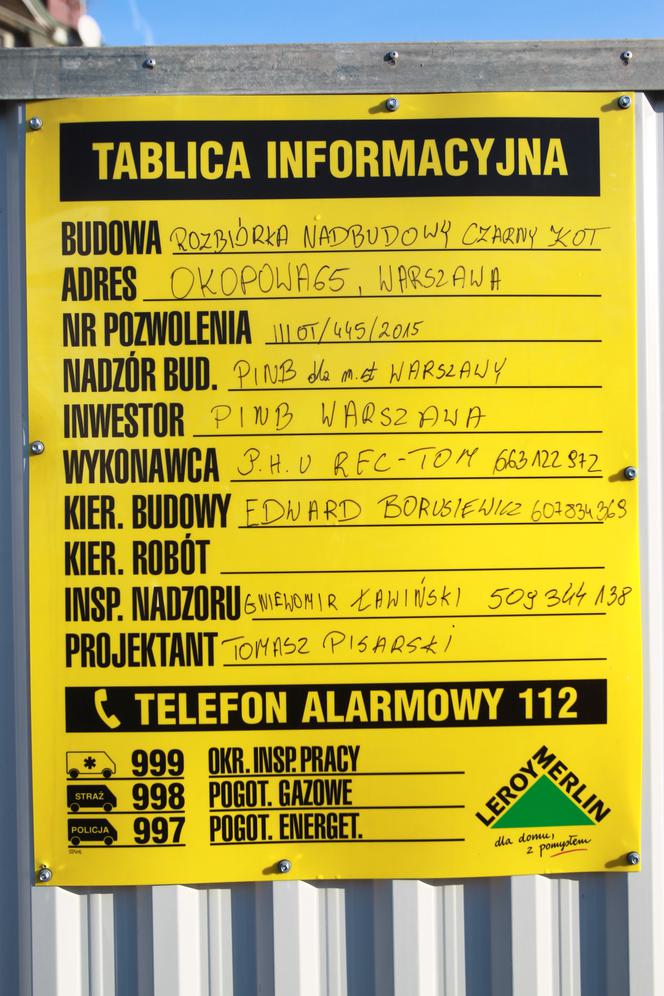 TABLICA INFORMACYJNA
BUDOWA ROZBIÓRKA NADBUDOWY CZARNY KOT
ADRES OKOPOWA 65, WARSZAWA
NR POZWOLENIA IIIOT/445/2015
NADZÓR BUD. PINB dla m.st WARSZAWY
INWESTOR PINB WARSZAWA
WYKONAWCA P.H.U REC-TOM 663122972
KIER. BUDOWY EDWARD BORUSIEWICZ 607834369
KIER. ROBÓT
INSP. NADZORU GNIEWOMIR ŁAWIŃSKI 509 344 138
PROJEKTANT TOMASZ PISARSKI
TELEFON ALARMOWY 112
999 OKR. INSP. PRACY
STRAŻ 998 POGOT. GAZOWE
POLICJA 997 POGOT. ENERGET.
LEROY MERLIN
dla domu,
z pomysłem